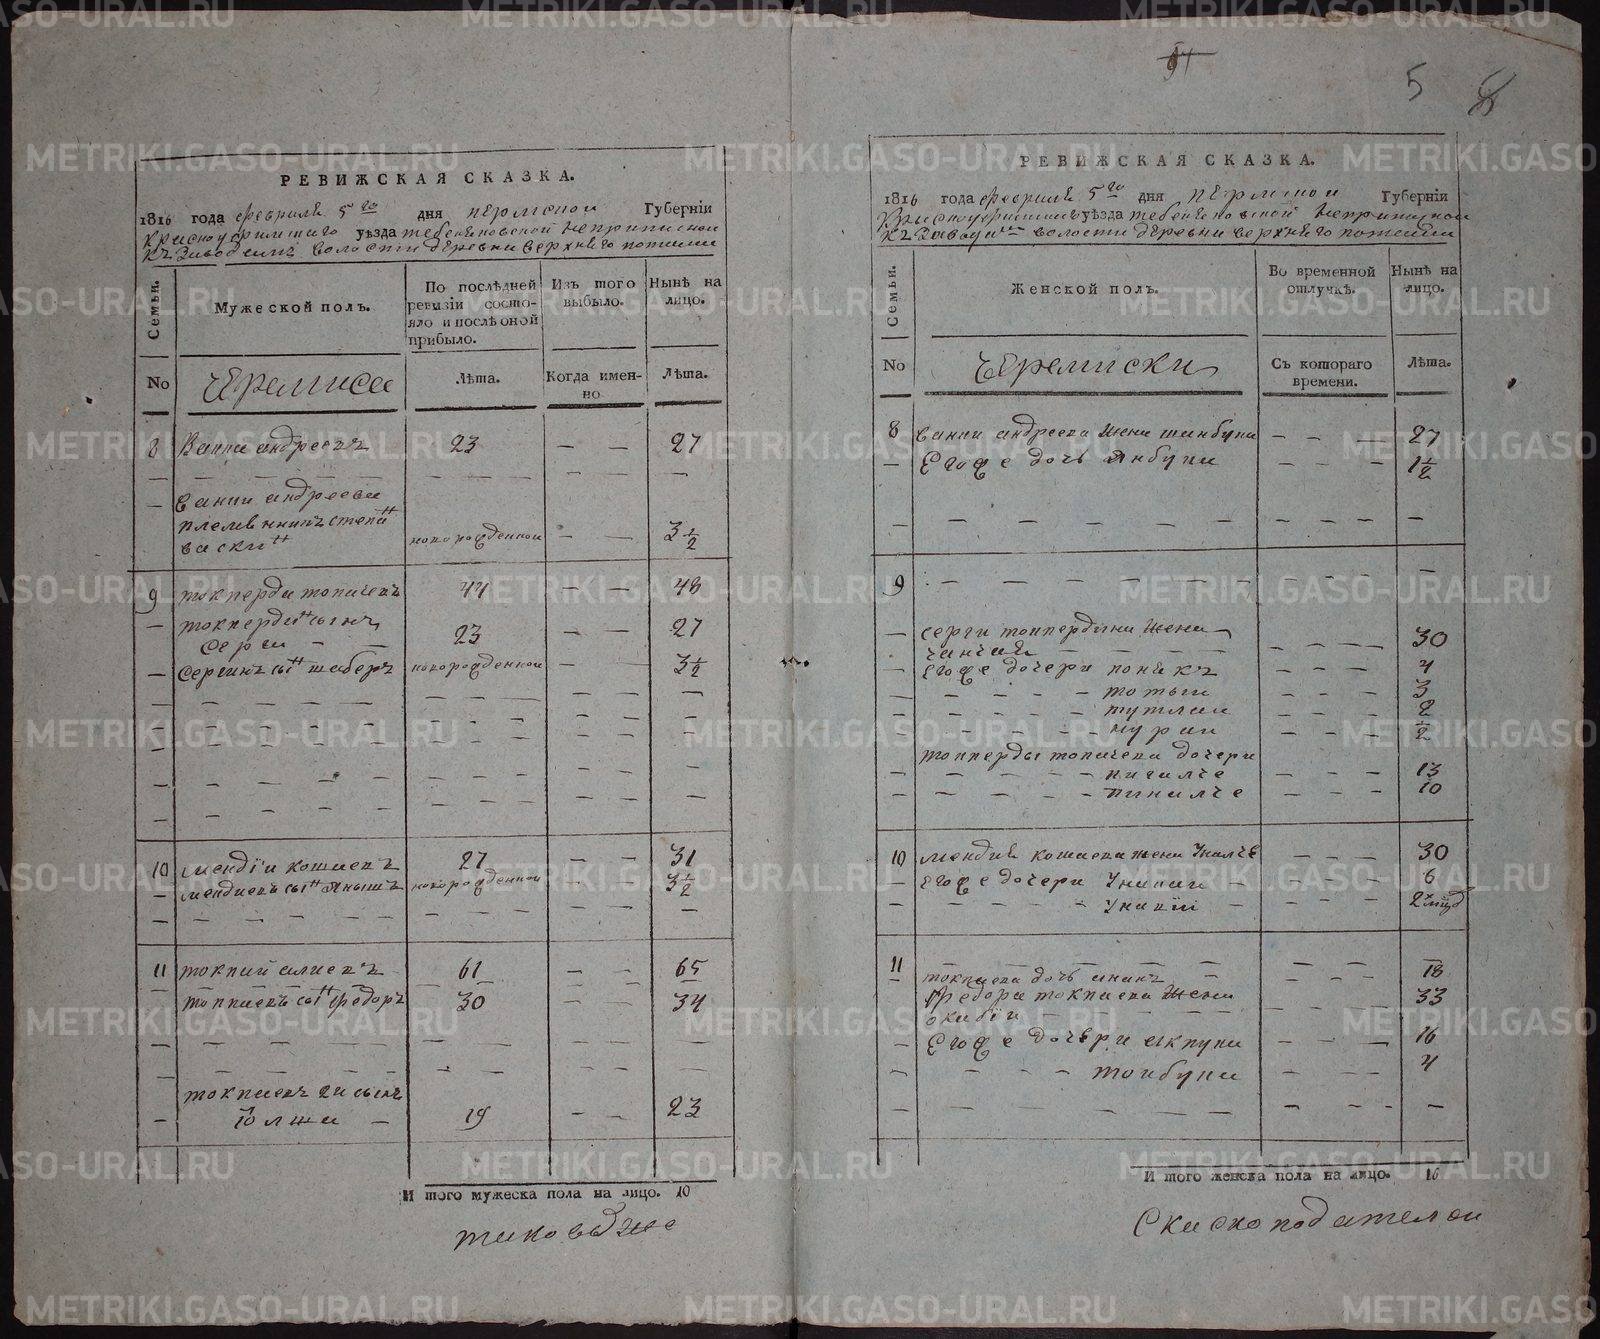 РЕВИЖСКАЯ СКАЗКА.
1816 года февраля 5го дня пермской Губернїи
Красноуфимского уѣзда тебеняковской неприписной
къ Заводамъ волости деревни верхняго потама
Семьи.
Мужеской полъ.
По послѣдней ревизїи состояло и послѣ оной прибыло.
Изъ того выбыло.
Нынѣ на лицо.
No
черемиса
Лѣта.
Когда именно
Лѣта.
8 Вани андреевъ 23 — — 27
— Вани андреева
племянникъ степан
васки новорожденной — — 3 1/2
9 токперди топичевъ 44 — — 48
— токперди сынъ
серги — 23 — — 27
— сергинъ сын шаберъ новорожденной — 3 1/2
10 мендїи кошаевъ 27 — — 31
— мендиевъ сын янышъ новорожденной — — 3 1/2
11 токпай алиевъ 61 — — 65
токпаевъ сын федоръ 30 — — 34
токпаевъ 2й сынъ
— Юлши — 19 — — 23
И того мужеска пола на лицо. 10
таковыже
5
РЕВИЖСКАЯ СКАЗКА.
1816 года февраля 5го дня пермской Губернїи
Красноуфимскаго уѣзда тебеняковской неприписной
къ Заводам волости деревни верхняго потама
Семьи.
Женской полъ.
Во временной отлучкѣ.
Нынѣ на лицо.
No
Черемиски
Съ котораго времени.
Лѣта.
8 Вани андреева жена танбупи — — — 27
— Егоже дочь янбупи — — — 1 1/2
9 — — — — — —
— серги токпердина жена — 30
— Егоже дочери — — — 4
— — — — — 3
— — — — — 2
— — — — — 1/2
токперды топичева дочери
— — — — — 13
— — — — — 10
10 мендия кошаева жена Уналче — — — 30
— Егоже дочери Унапаи — — — — 6
— — — — — — 2
11 — — — — — —
— токпаева дочь — — — 18
Федора токпаева жена — 33
— Егоже дочери акпупи — — — 16
— — — — тойбупи — — — 4
И того женска пола на лицо. 16
Скаскоподателеи
METRIKI.GASO-URAL.RU